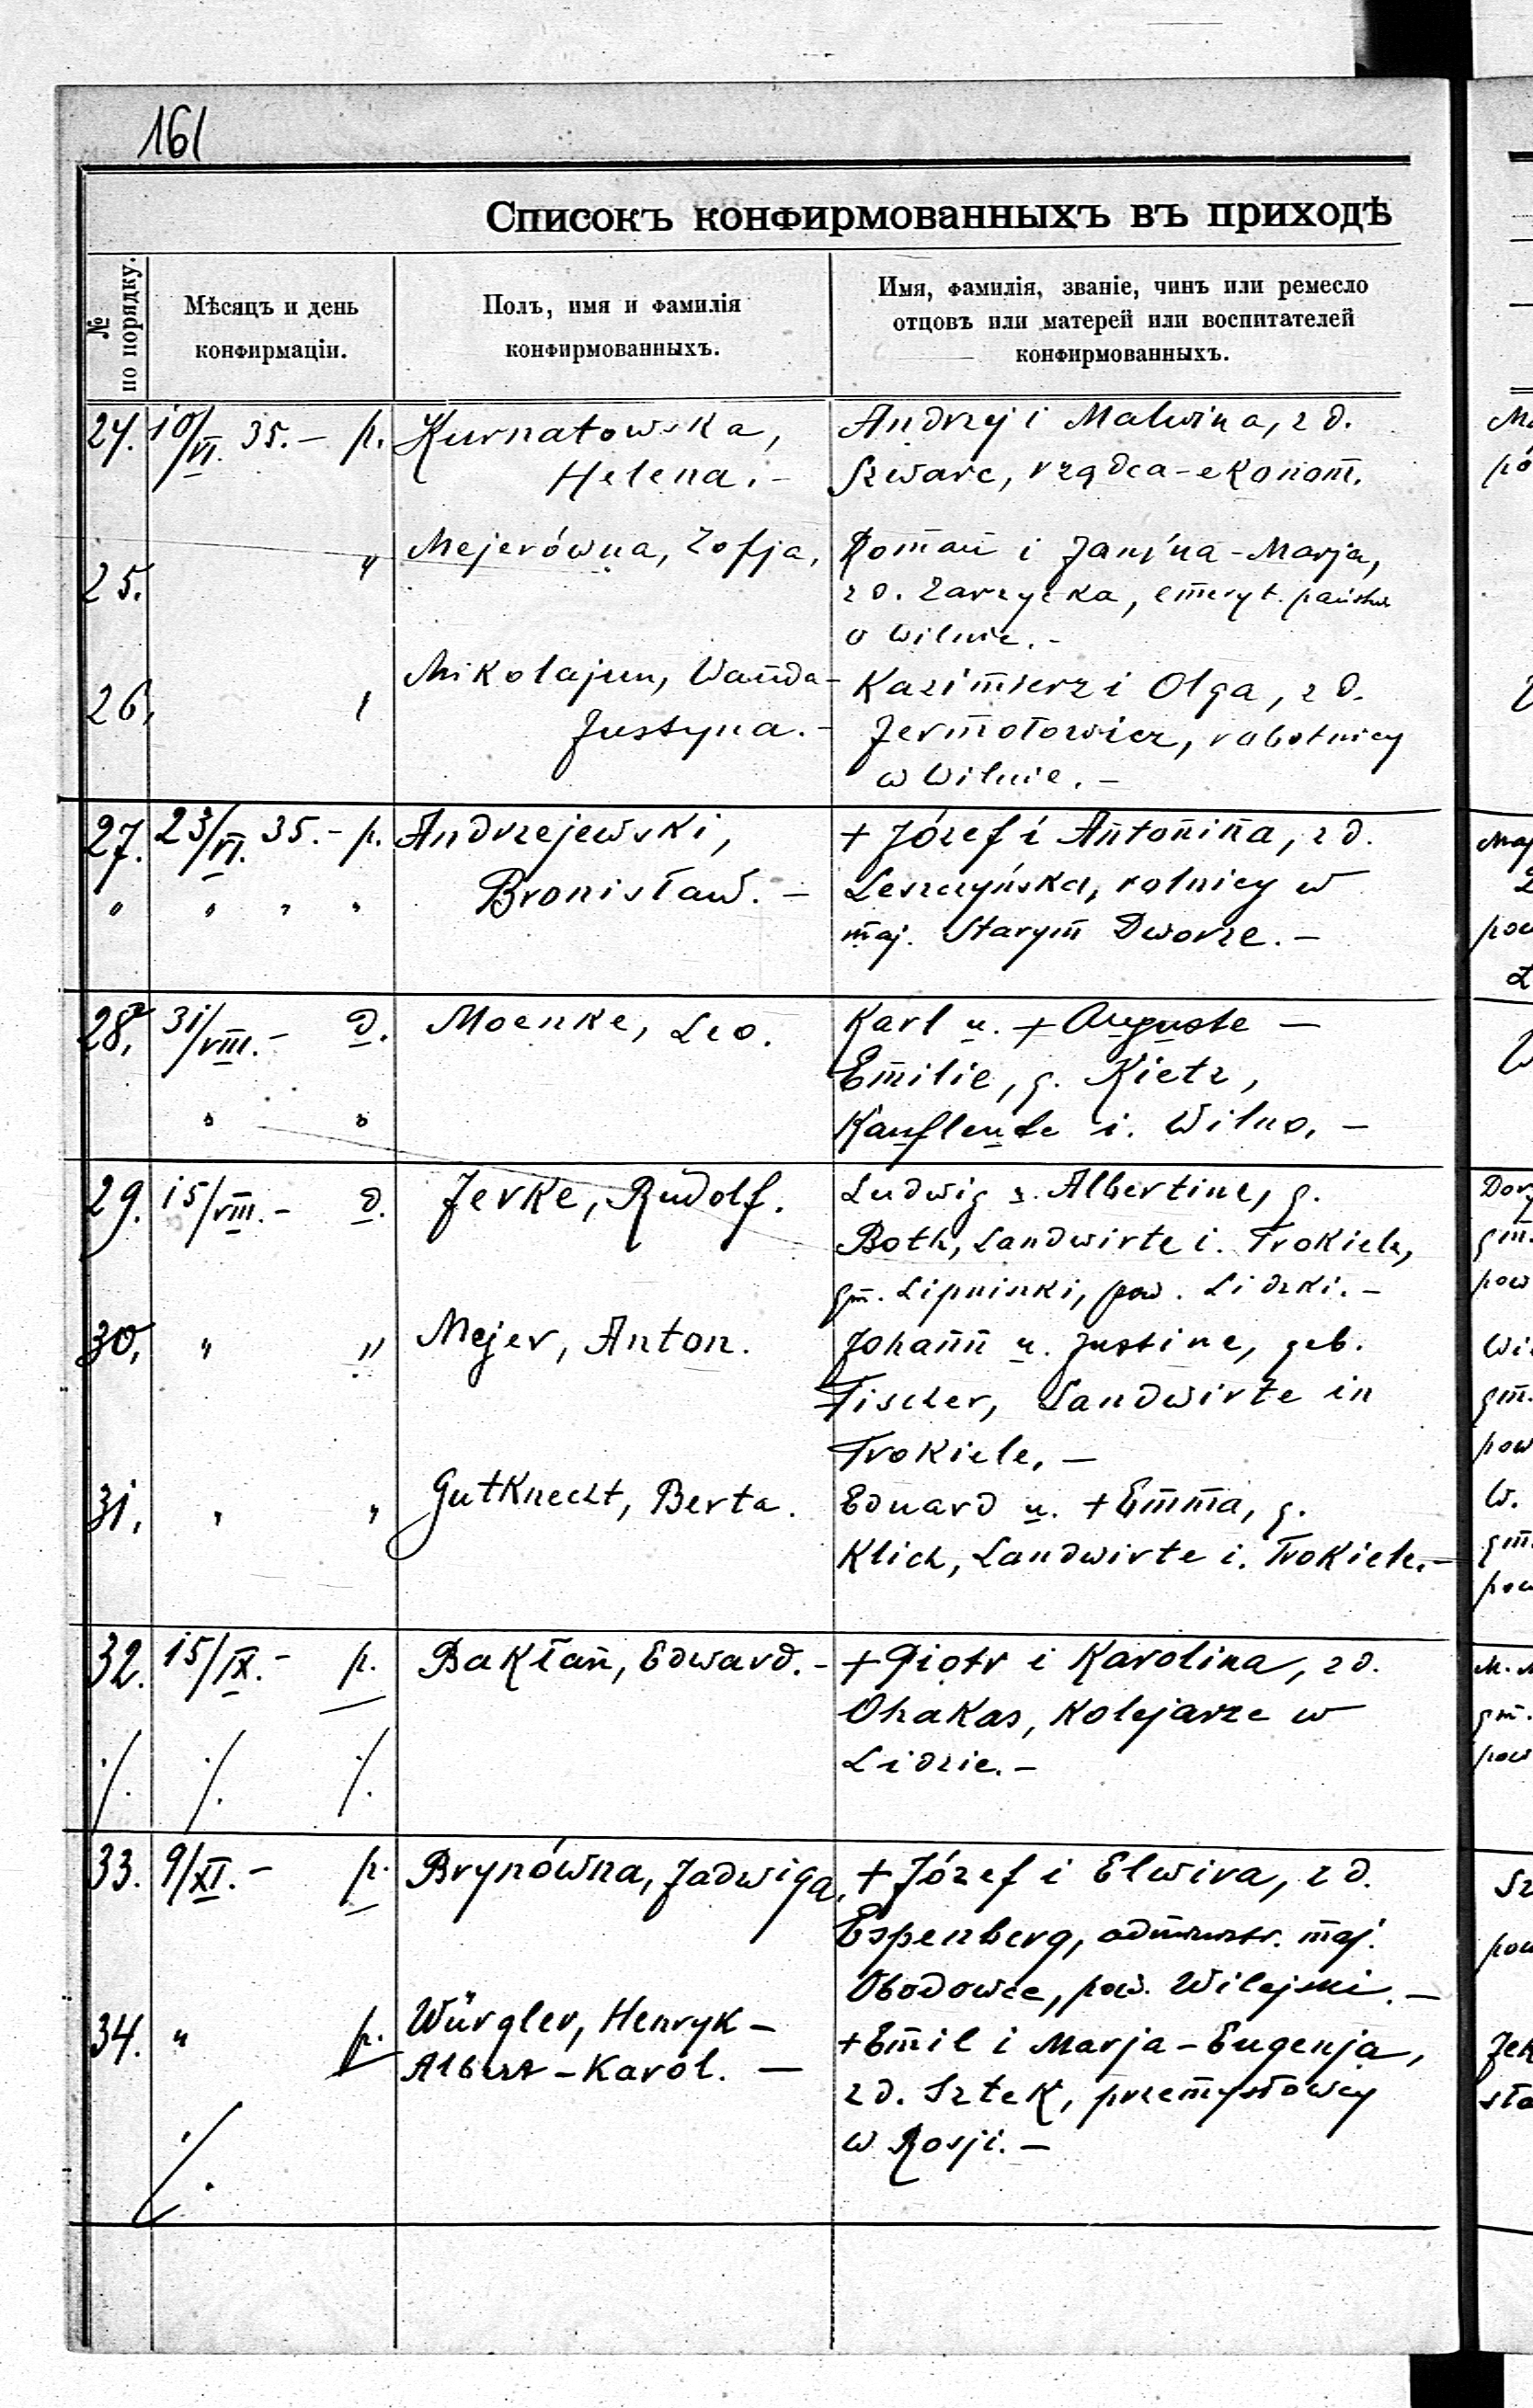 161
Списокъ конфирмованныхъ въ приходѣ
№ по порядку.
Мѣсяцъ и день
конфирмаціи.
Полъ, имя и фамилія
конфирмованныхъ.
Имя, фамилія, званіе, чинъ или ремесло
отцовъ или матерей или воспитателей
конфирмованныхъ.
24. 10/VI. 35.- p. Kurnatowska, Andrzej i Malwina, z d.
Helena.- Szwarc, rządca-ekonom.
25. " Mejerówna, Zofja, Roman i Janina-Marja,
z d. Zarzycka, emeryt. państw
w Wilnie.-
26. Mikolajun, Wanda- Kazimierz i Olga, z d.
Justyna.- Jermołowicz, robotnicy
w Wilnie.-
27. 23/VI. 35.- p. Andrzejewski, + Józef i Antonina, z d.
" " " " Bronisław.- Leszczyńska, rolnicy w
maj. Starym Dworze.-
28. 31/VIII.- d. Moenke, Leo. Karl u. + Auguste -
Emilie, g. Kietz,
" " Kaufleute i. Wilno.-
29. 15/VIII.- d. Jerke, Rudolf. Ludwig u. Albertine, g.
Both, Landwirte i. Trokiele,
gm. Lipniszki, pow. Lidzki.-
30. " " Mejer, Anton. Johann u. Justine, geb.
Fischer, Landwirte in
Trokiele.-
31. " " Gutknecht, Berta. Eduard u. + Emma, g.
Klich, Landwirte i. Trokiele.-
32. 15/IX.- p. Bakłan, Edward.- + Piotr i Karolina, z d.
Ohakas, Kolejarze w
./. ./. ./. Lidzie.-
33. 9/XI.- p. Brynówna, Jadwiga. + Józef i Elwira, z d.
Espenberg, administr. maj.
Obodowce, pow. Wilejski.-
34. " p. Würgler, Henryk- + Emil i Marja-Eugenja,
Albert-Karol.- z d. Sztek, przemysłowcy
./. w Rosji.-